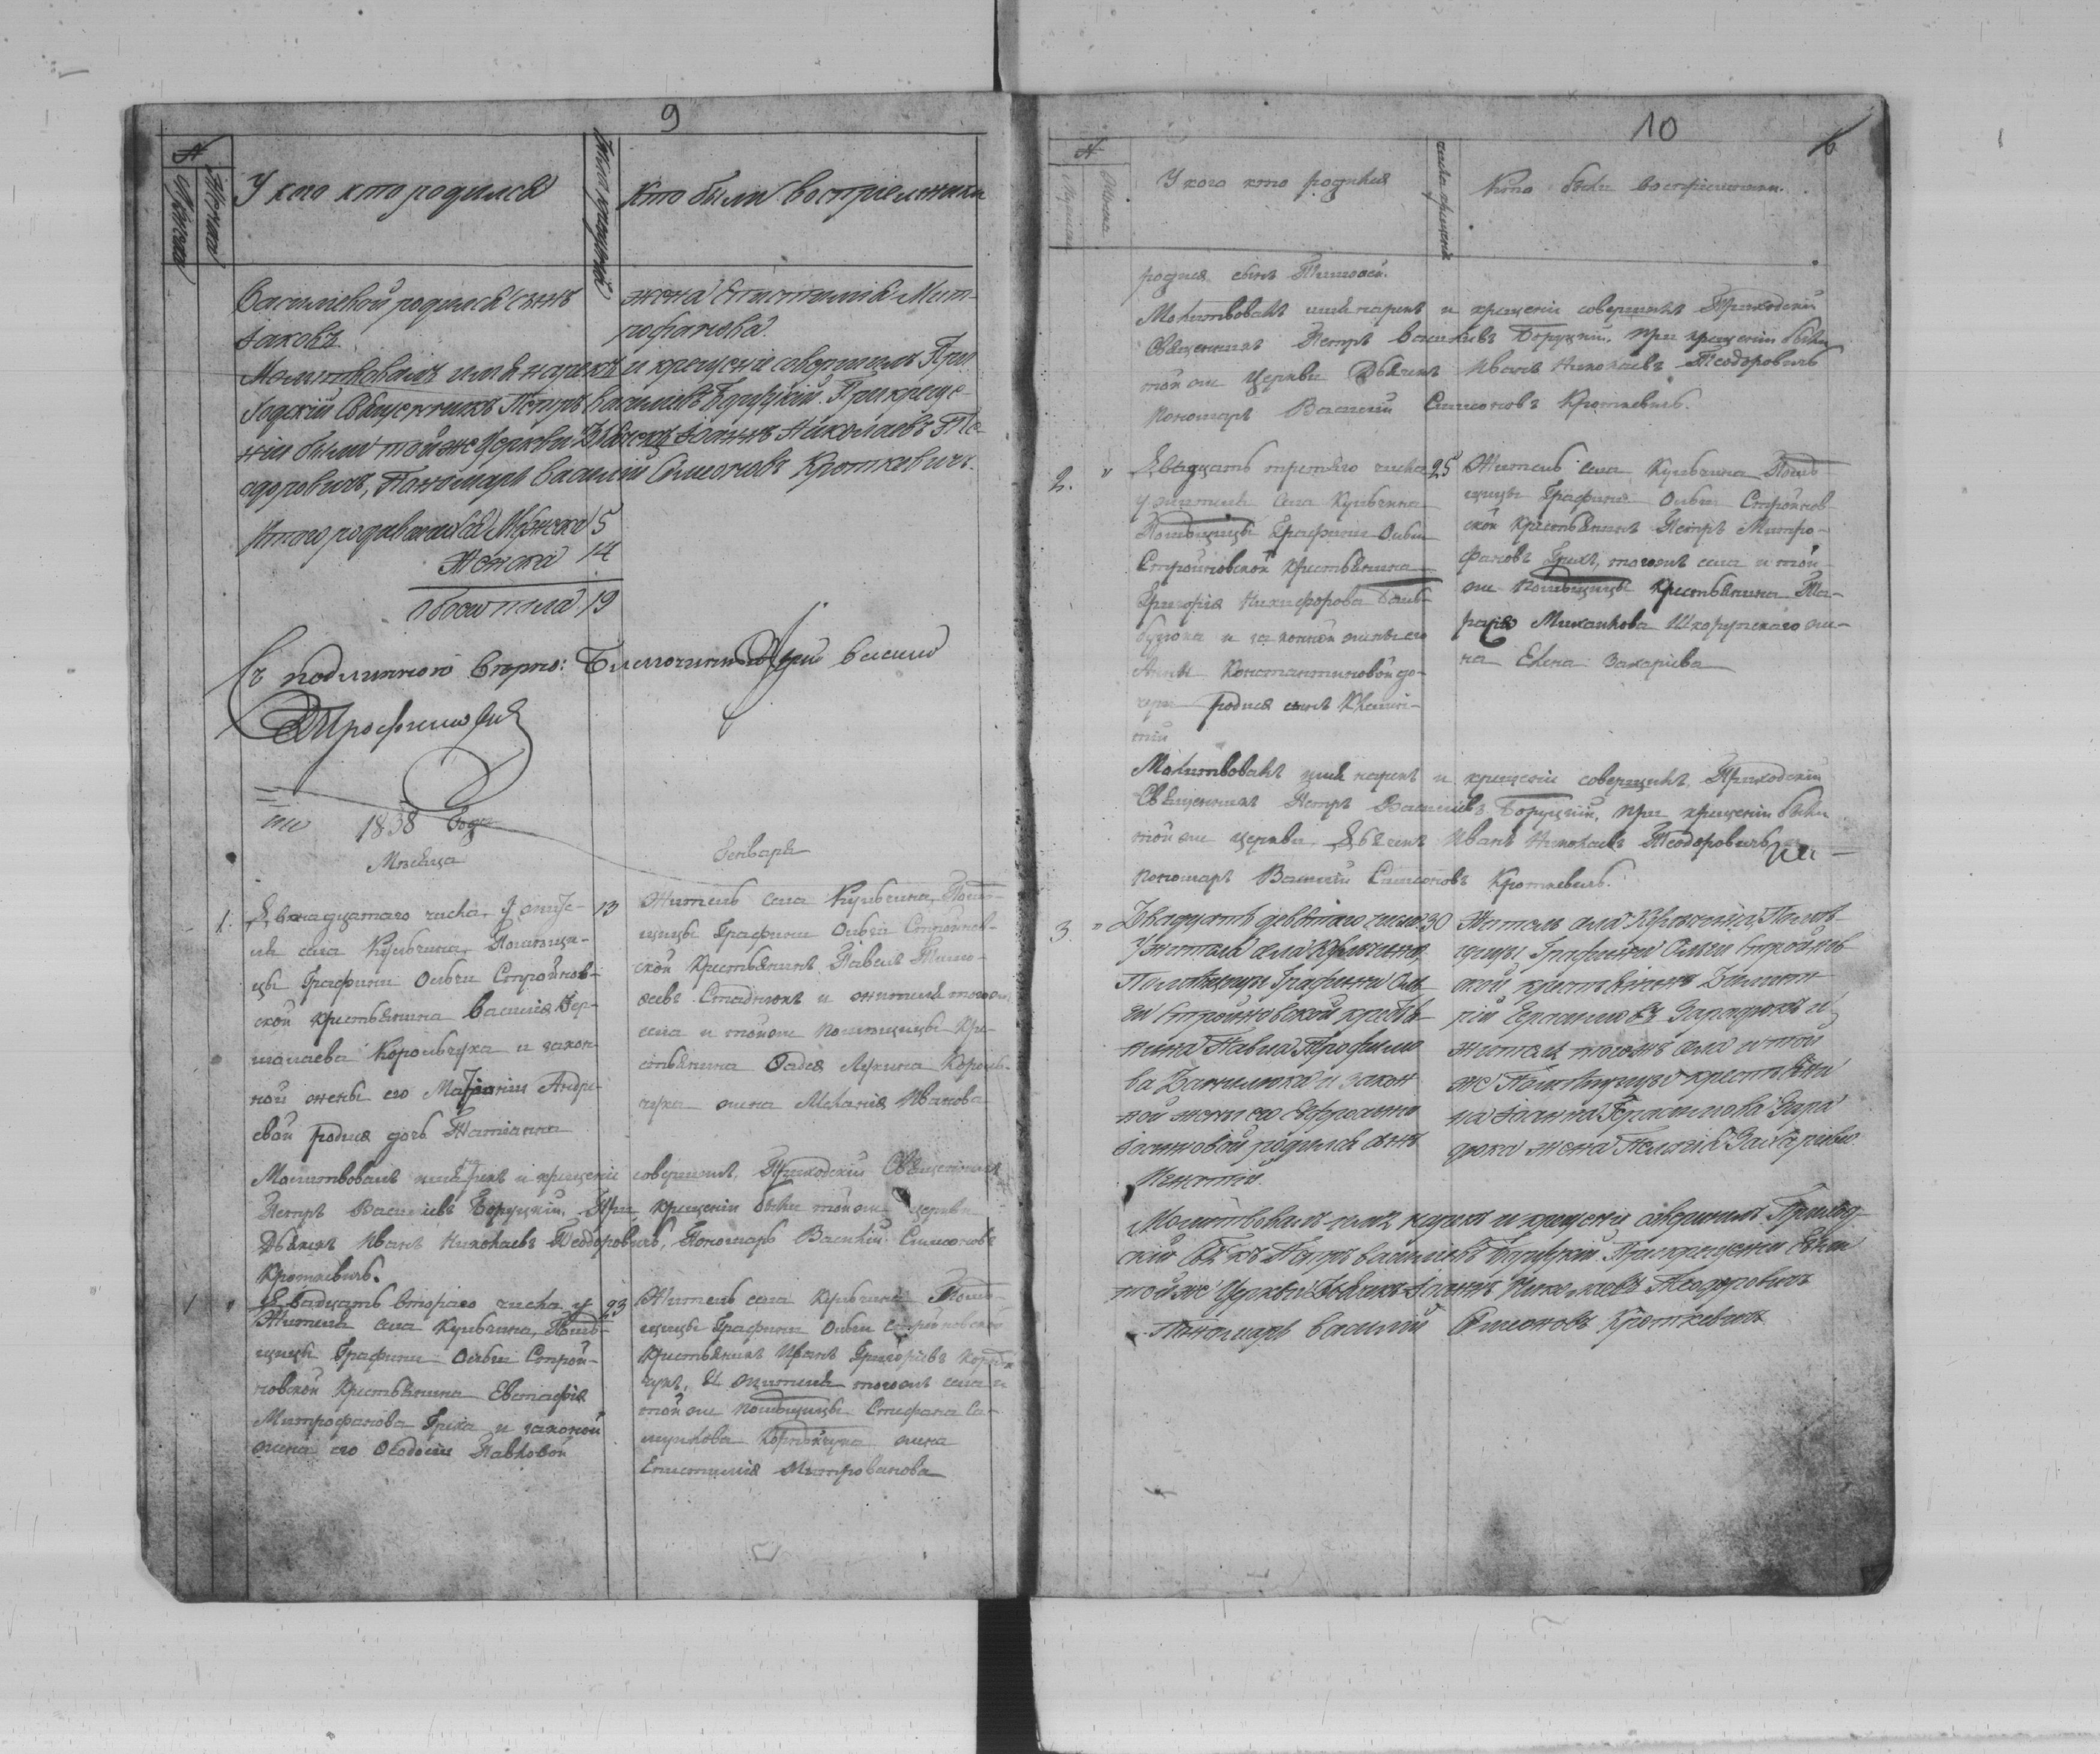 9
№
Мужеска
Женска
У кого кто родился
Число крещенія
Кто были воспріемники
Василіевой родился сынъ
Іаковъ
жена Епистимія Мит-
рофанова.
Молитвовалъ имя нарекъ и крещеніе совершилъ При-
ходскій Священникъ Петръ Василіевъ Боруцкій. При креще-
ніи были тойже Церкви Дьячекъ Іоаннъ Николаевъ Те-
одоровичъ, Пономарь Василій Симеоновъ Кроткевичъ.
Итого родившихся Мужеска 5
Женска 14
Обоего пола 19
Съ подлинною верно: Благочинный
1838 Года
Месяца
Генваря
1.
Двенадцатаго числа, У жите-
ля села Кульчина, Помещи-
цы Графини Ольги Стройнов-
ской крестьянина Василія Ер-
молаева Корольчука и закон-
ной жены его Матроны Андре-
евой родися дочь Татіанна
13
Житель села Кульчина, Поме-
щицы Графини Ольги Стройнов-
ской Крестьянинъ Павелъ Тимо-
феевъ Стаднюкъ и жителя тогожъ
села и тойже помещицы Кре-
стьянина Фадея Лукина Король-
чука жена Меланія Иванова
Молитвовалъ имя нарекъ и крещеніе совершилъ Приходскій Священникъ
Петръ Василіевъ Боруцкій. При крещеніи были тойже церкви
Дьячекъ Иванъ Николаевъ Теодоровичъ, Пономарь Василій Симеоновъ
Кроткевичъ.
1 "
Двадцать втораго числа у
Жителя села Кульчина, Поме-
щицы Графини Ольги Строй-
новской Крестьянина Евстафія
Митрофанова Гриха и законой
жены его Феодосіи Павловой
23
Житель села Кульчина Поме-
щицы Графини Ольги Стройновской
Крестьянинъ Иванъ Григоріевъ
чукъ, И жителя тогожъ села и
тойже помещицы Стефана Са-
муилова жена
Епистимія Митрофанова
10
№
Мужеска
Женска
У кого кто родился
числа крещенія
Кто были воспріемники.
родися сынъ Тимофей.
Молитвовалъ имя нарекъ и крещеніе совершилъ Приходскій
Священникъ Петръ Василіевъ Боруцкій, при крещеніи были
тойже Церкви Дьячекъ Иванъ Николаевъ Теодоровичъ
Пономарь Василій Симеоновъ Кроткевичъ.
2. "
Двадцать третьяго числа
у жителя села Кульчина
Помещицы Графини Ольги
Стройновской Крестьянина
Григорія Никифорова
и законной жены его
Анны Константиновой до-
чери родися сынъ
25
Житель села Кульчина Поме-
щицы Графини Ольги Стройнов-
ской Крестьянинъ Петръ Митро-
фановъ Грихъ, тогожъ села и той-
же Помещицы Крестьянина Та-
расія Михайлова же-
на Елена Захаріева
Молитвовалъ имя нарекъ и крещеніе совершилъ Приходскій
Священникъ Петръ Василіевъ Боруцкій, при крещеніи были
тойже церкви Дьячекъ Иванъ Николаевъ Теодоровичъ
Пономарь Василій Симеоновъ Кроткевичъ.
3. "
Двадцать девятаго числа
У жителя села Кульчина
Помещицы Графини Оль-
ги Стройновской крестья-
нина Павла Трофимо-
ва Данилюка и закон-
ной жены его Евфросиніи
Іоанновой родился сынъ
30
Житель села Кульчина, Поме-
щицы Графини Ольги Стройнов-
ской крестьянинъ Димит-
рій Герасимовъ и
жителя тогожъ села и той
же Помещицы крестьяни-
на Іоанна Герасимова
жена Пелагія Захаріева
Молитвовалъ имя нарекъ и крещеніе совершилъ Приход-
скій Св-къ Петръ Василіевъ Боруцкій. При крещеніи были
тойже Церкви Дьячекъ Іоаннъ Николаевъ Теодоровичъ
Пономарь Василій Симеоновъ Кроткевичъ